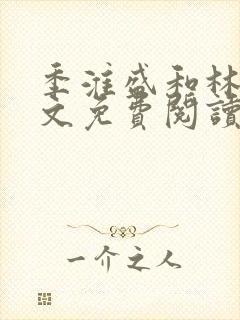 季淮盛和林
文免費閱讀
一介之人